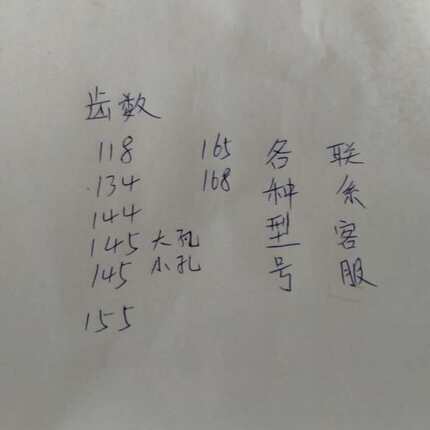 齿数
118
134
144
145 大孔
145 小孔
155
165
168
各种型号
联系客服